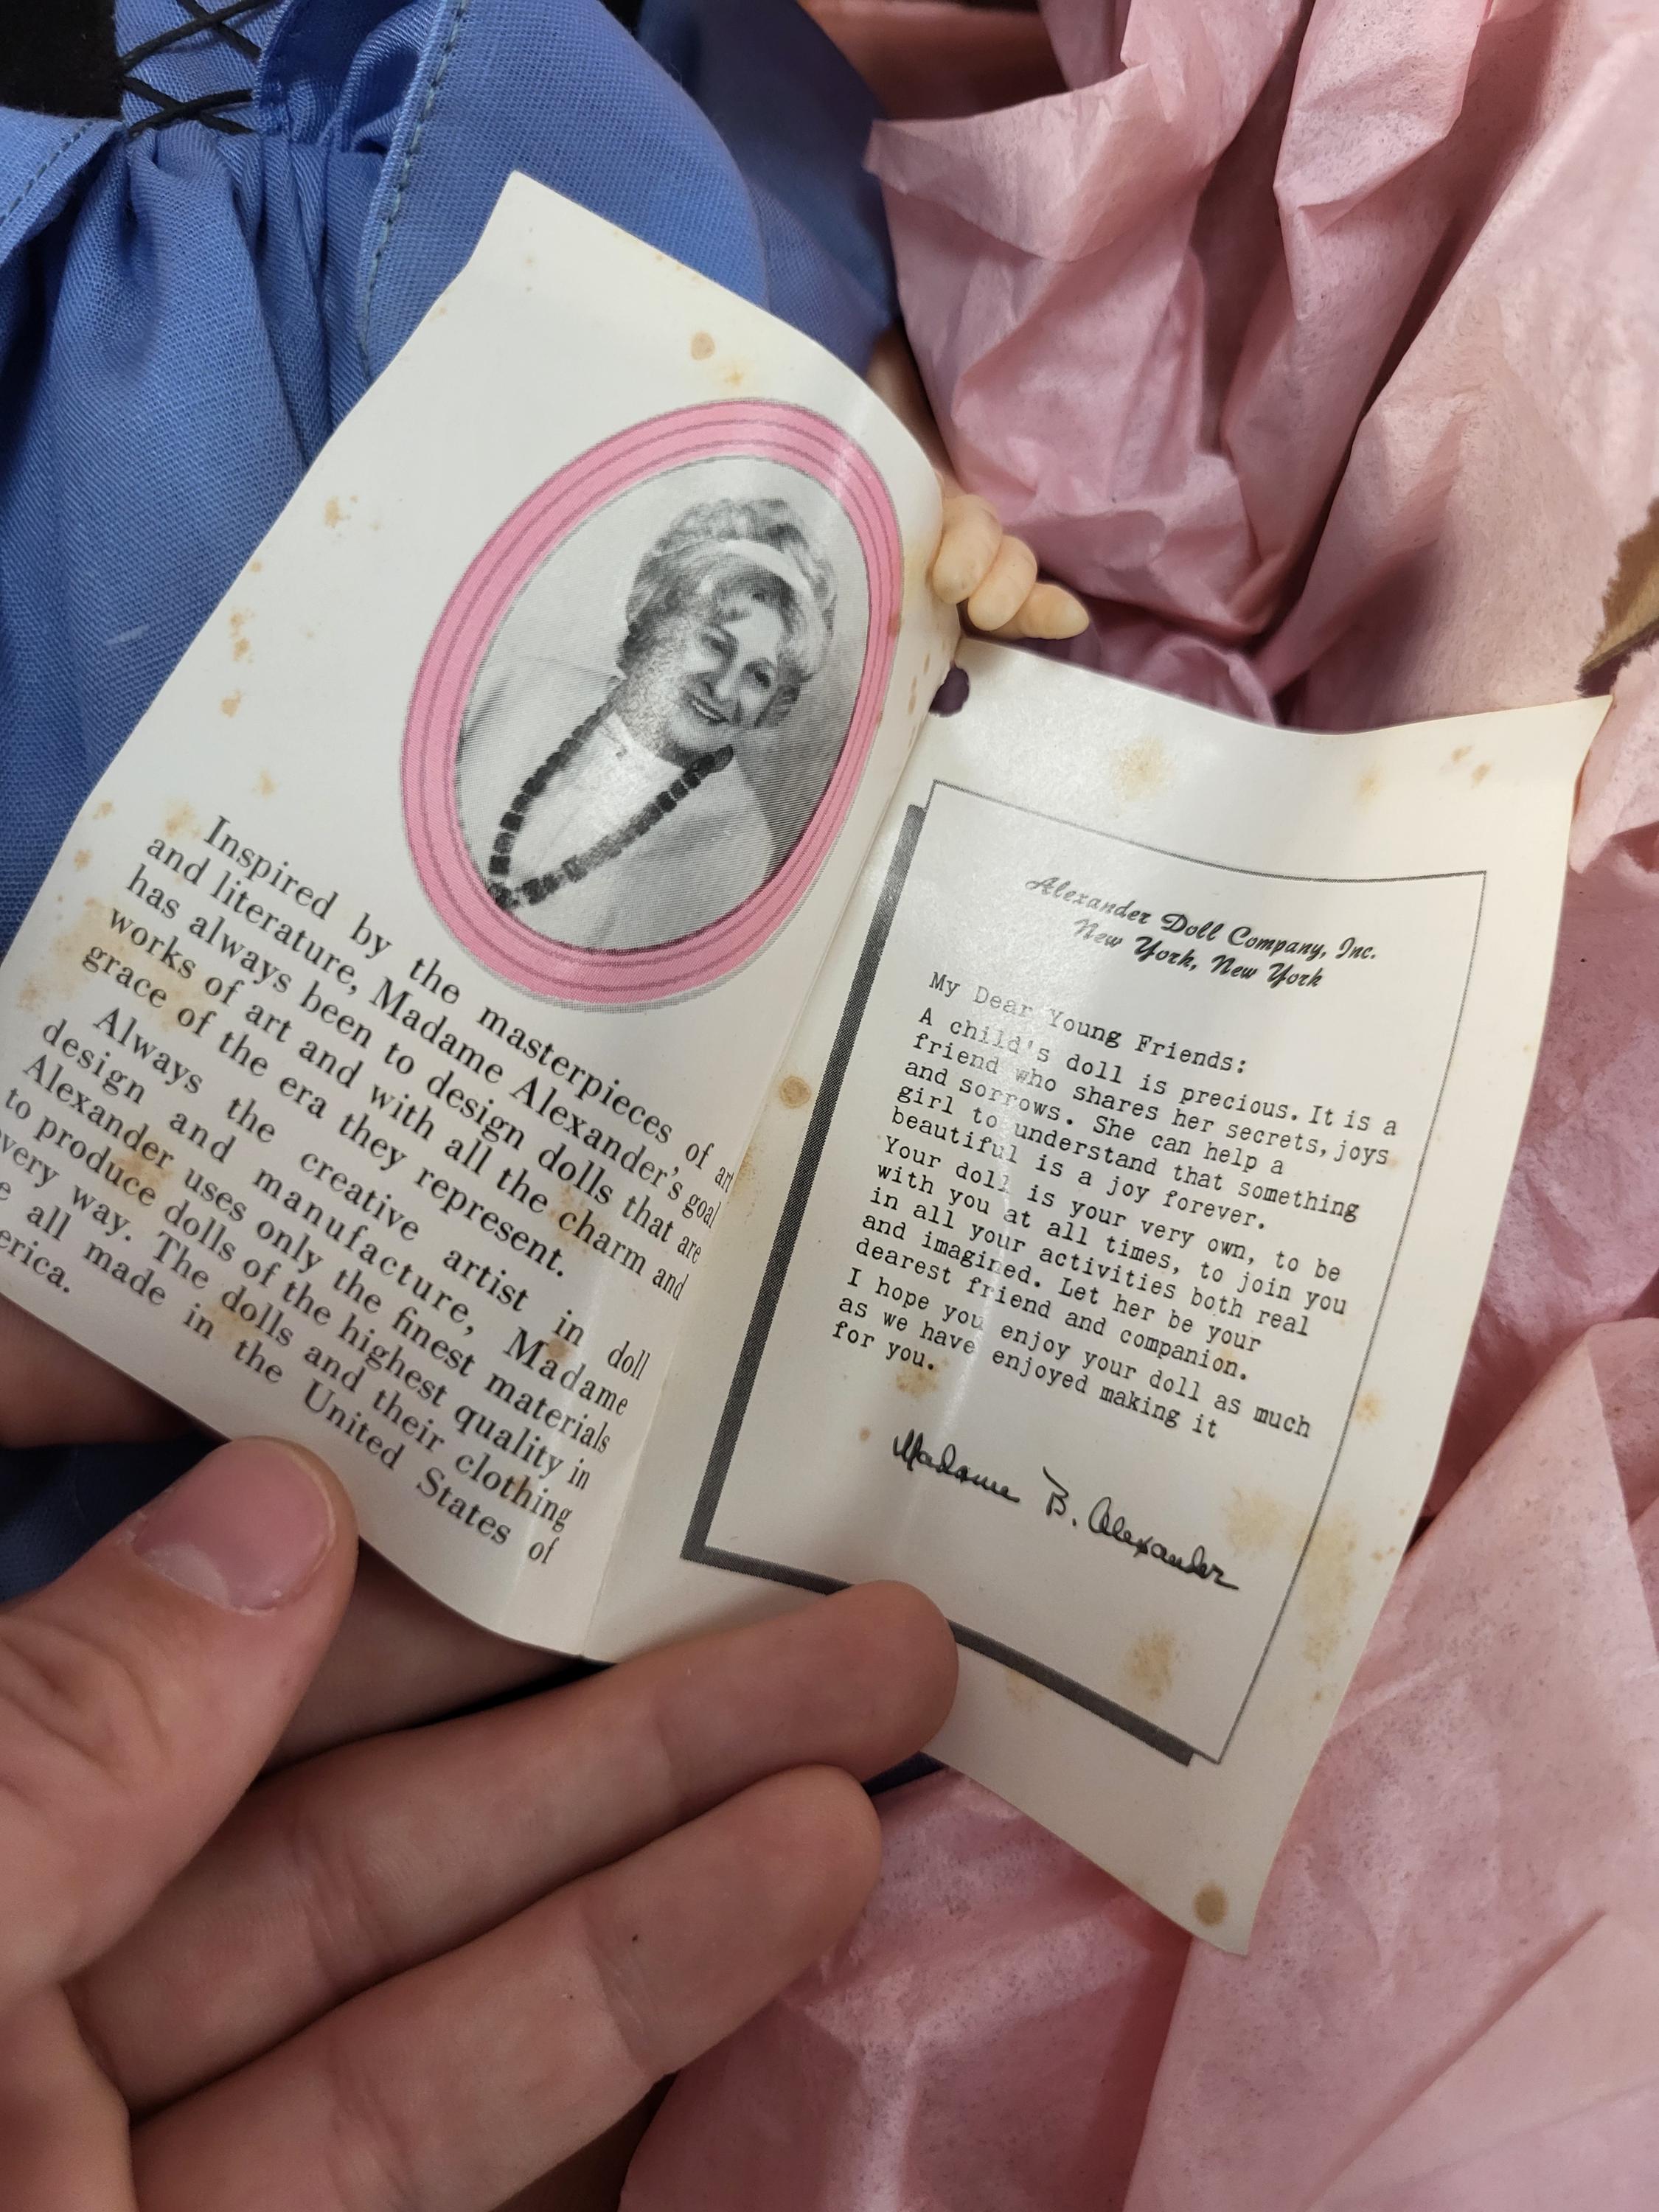 Inspired by the masterpieces of art
and literature, Madame Alexander's goal
has always been to design dolls that are
works of art and with all the charm and
grace of the era they represent.
Always the creative artist in doll
design and manufacture, Madame
Alexander uses only the finest materials
to produce dolls of the highest quality in
very way. The dolls and their clothing
e all made in the United States of
erica.
Alexander Doll Company, Inc.
New York, New York
My Dear Young Friends:
A child's doll is precious. It is a
friend who shares her secrets, joys
and sorrows. She can help a
girl to understand that something
beautiful is a joy forever.
Your doll is your very own, to be
with you at all times, to join you
in all your activities both real
and imagined. Let her be your
dearest friend and companion.
I hope you enjoy your doll as much
as we have enjoyed making it
for you.
Madame B. Alexander